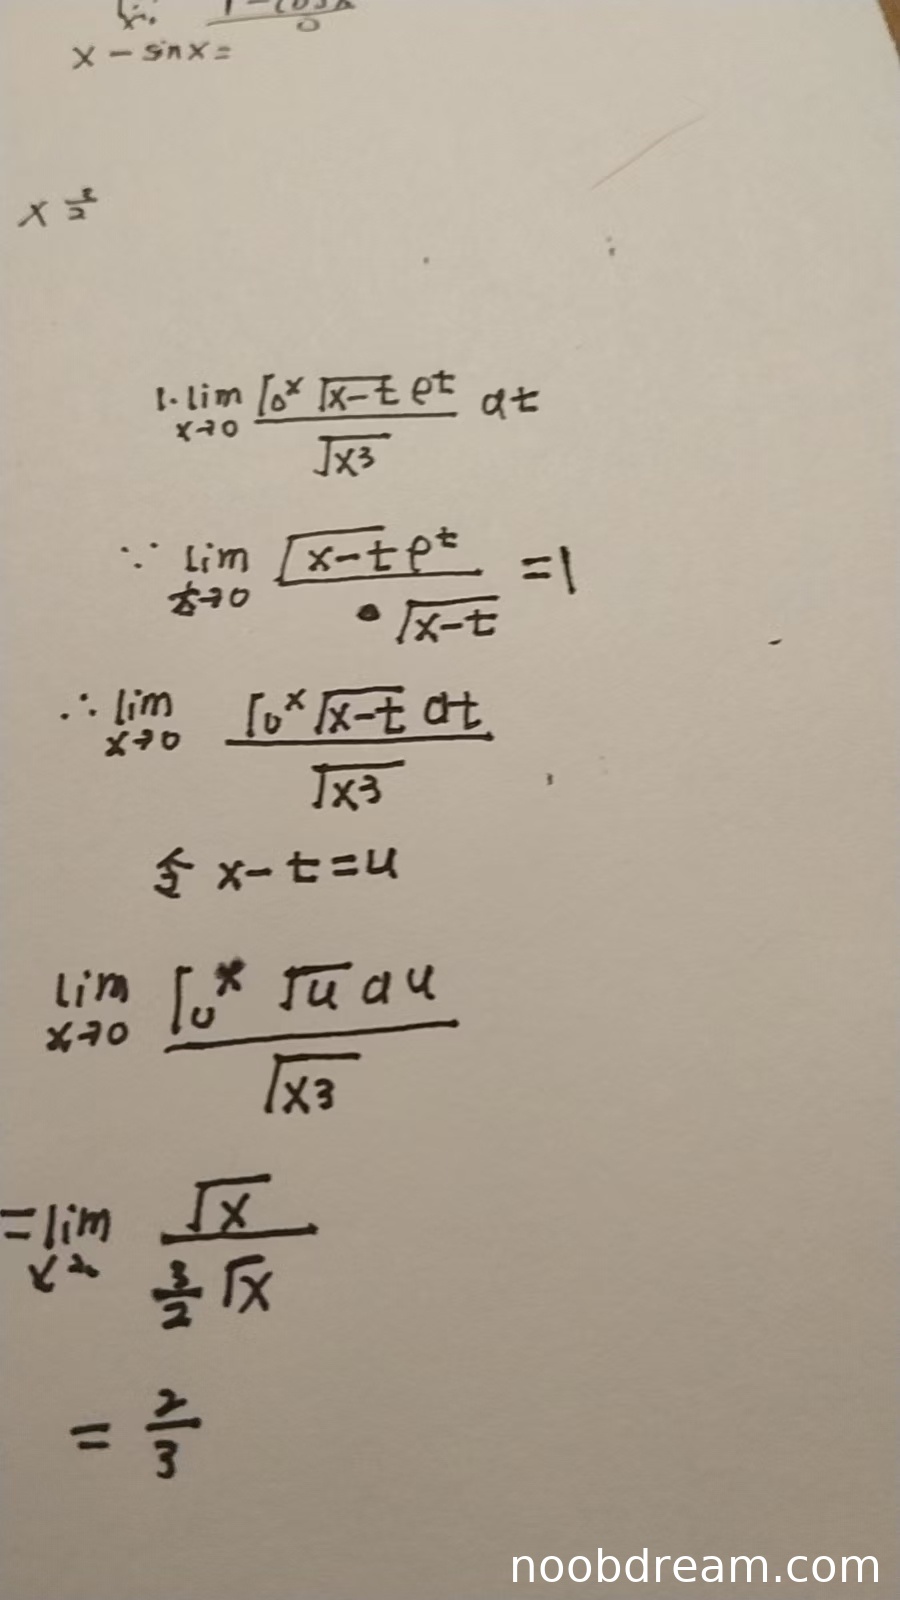 x - sinx =
x^{3/2}
1. lim_{x→0} \frac{∫_0^x √(x-t) e^t}{√(x^3)} dt
∵ lim_{t→0} \frac{√(x-t) e^t}{√(x-t)} = 1
∴ lim_{x→0} \frac{∫_0^x √(x-t) dt}{√(x^3)}
令 x - t = u
lim_{x→0} \frac{∫_0^x √u du}{√(x^3)}
= lim_{x→0} \frac{√x}{\frac{3}{2} √x}
= \frac{2}{3}
noobdream.com